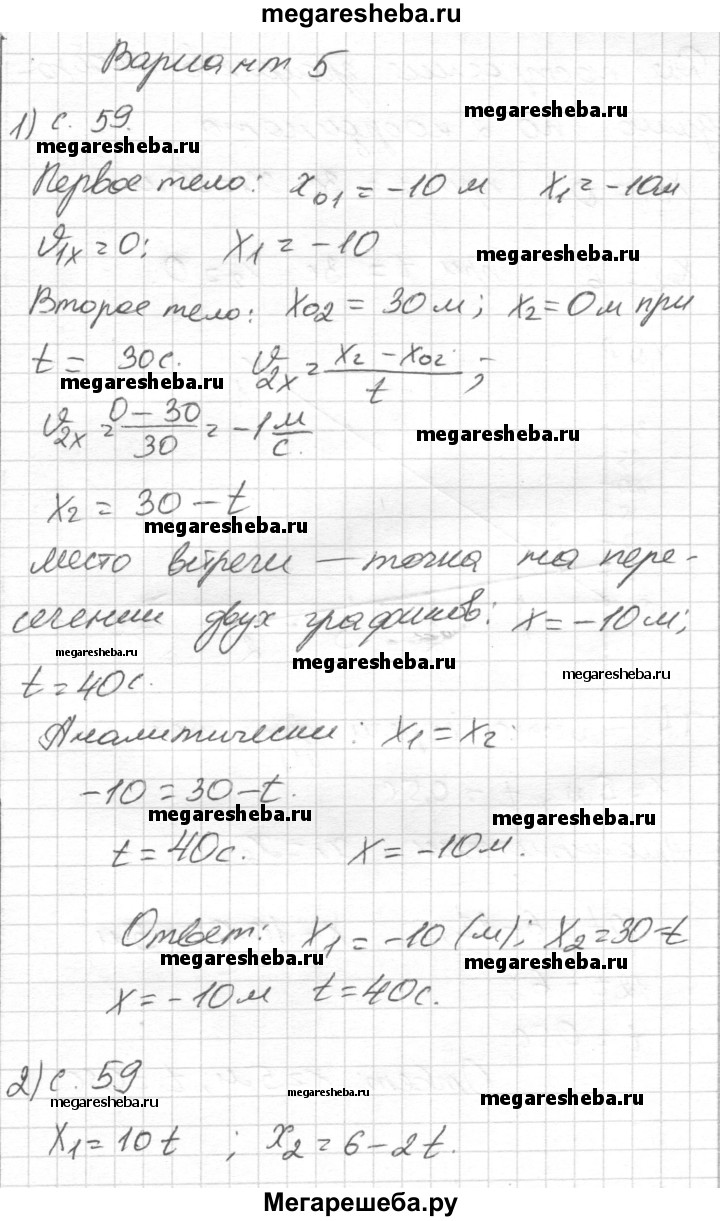 megaresheba.ru
Вариант 5
megaresheba.ru
1) с. 59.
megaresheba.ru
Первое тело: x₀₁ = -10 м x₁ = -10м
megaresheba.ru
υ₁ₓ = 0; x₁ = -10
Второе тело: x₀₂ = 30 м; x₂ = 0 м при
t = 30 с. υ₂ₓ = (x₂ - x₀₂)/t;
megaresheba.ru
υ₂ₓ = (0 - 30)/30 = -1 м/с.
megaresheba.ru
x₂ = 30 - t
megaresheba.ru
место встречи — точка на пере-
сечении двух графиков: x = -10 м;
megaresheba.ru
megaresheba.ru
megaresheba.ru
t = 40 с.
Аналитически: x₁ = x₂
-10 = 30 - t.
megaresheba.ru
megaresheba.ru
t = 40 с. x = -10 м.
Ответ: x₁ = -10 (м); x₂ = 30 - t
megaresheba.ru
megaresheba.ru
x = -10 м t = 40 с.
2) с. 59
megaresheba.ru
megaresheba.ru
megaresheba.ru
x₁ = 10 t ; x₂ = 6 - 2 t.
Мегарешеба.ру